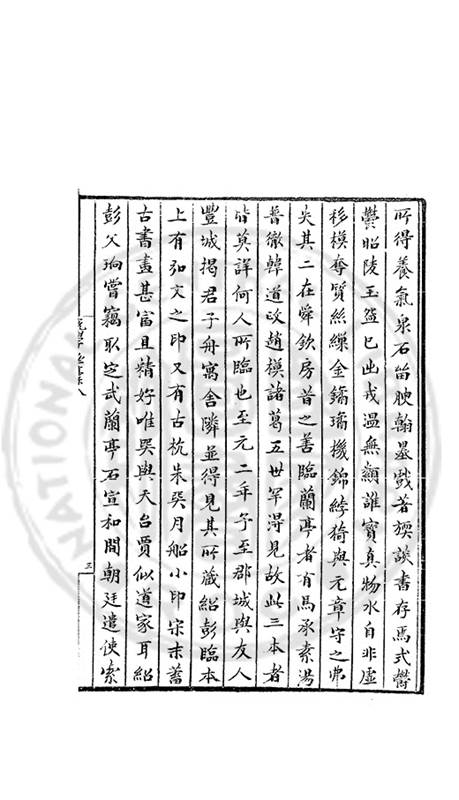 所得養氣泉石留腴翰墨戲著談書存馬式鬱
鬱昭陵玉盌已出戎溫無類誰寶真物水自非虛
移模奪質絲纙金鏑璚機錦綺猗與元章守之弗
失其二在舜欽房昔之善臨蘭亭者有馬承素湯
普徹韓道政趙模諸葛五世罕得見故此三本者
皆莫詳何人所臨也至元二年予至郡城與友人
豐城揭君子舟寓舍隣並得見其所藏紹彭臨本
上有弘文之印又有古杭朱癸月船小印宋末蓄
古書畫甚富且精好唯癸與天台賈似道家耳紹
彭父珦嘗竊取定武蘭亭石宣和間朝廷遣使索
三